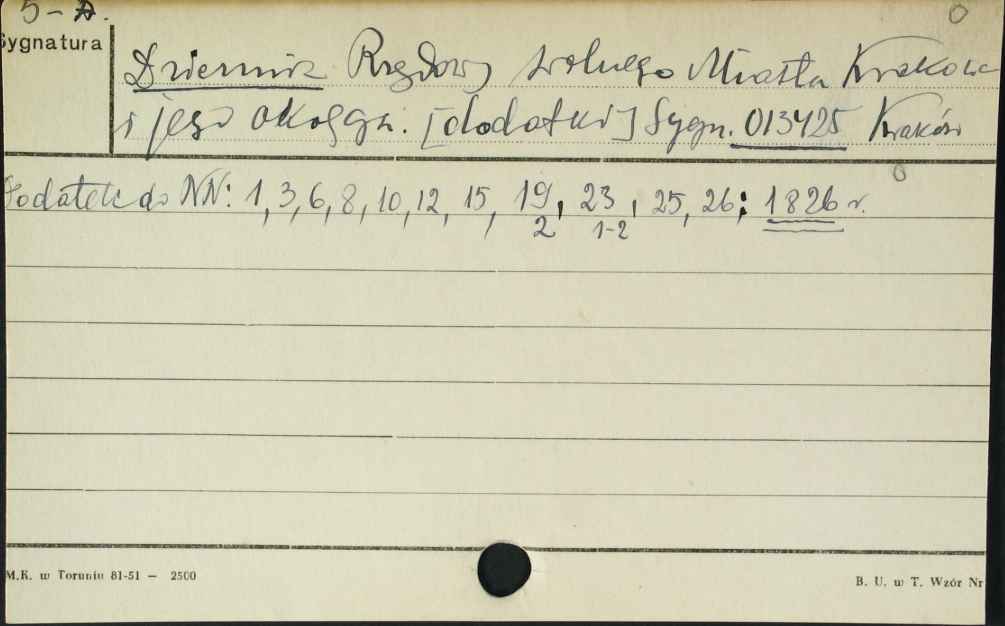 5 - A.
Sygnatura
Dziennik Rządowy wolnego Miasta Krakowa
i jego okolęgu. [dodatki] Sygn. 013425 Kraków
Dodatek do NN: 1, 3, 6, 8, 10, 12, 15, 19, 23, 25, 26; 1826 r.
2 1-2
M.K. w Toruniu 81-51 — 2500
B. U. w T. Wzór Nr